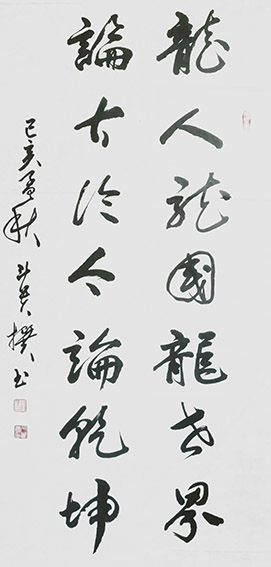 龍人龍國龍世界
論古論今論乾坤
己亥孟秋 斗贵撰书